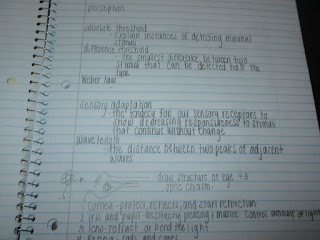 perception
absolute threshold
explain instances of detecting minimal
stimuli
difference threshold
the smallest difference between two
stimuli that can be detected half the
time
Weber law
sensory adaptation
the tendecy for our sensory receptors to
show decreasing responsiveness to stimuli
that continue without change
wavelength
the distance between two peaks of adjacent
waves
draw structure of eye 4.3
optic chiasm
1. cornea- protect, reflects, and start refraction
2. iris and pupil- muscle control amount of light
3. lens- refract or bend the light
4. Retina- rods and cones